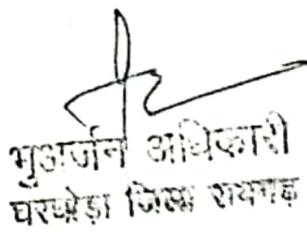 भूअर्जन अधिकारी
घरघोड़ा जिला रायगढ़